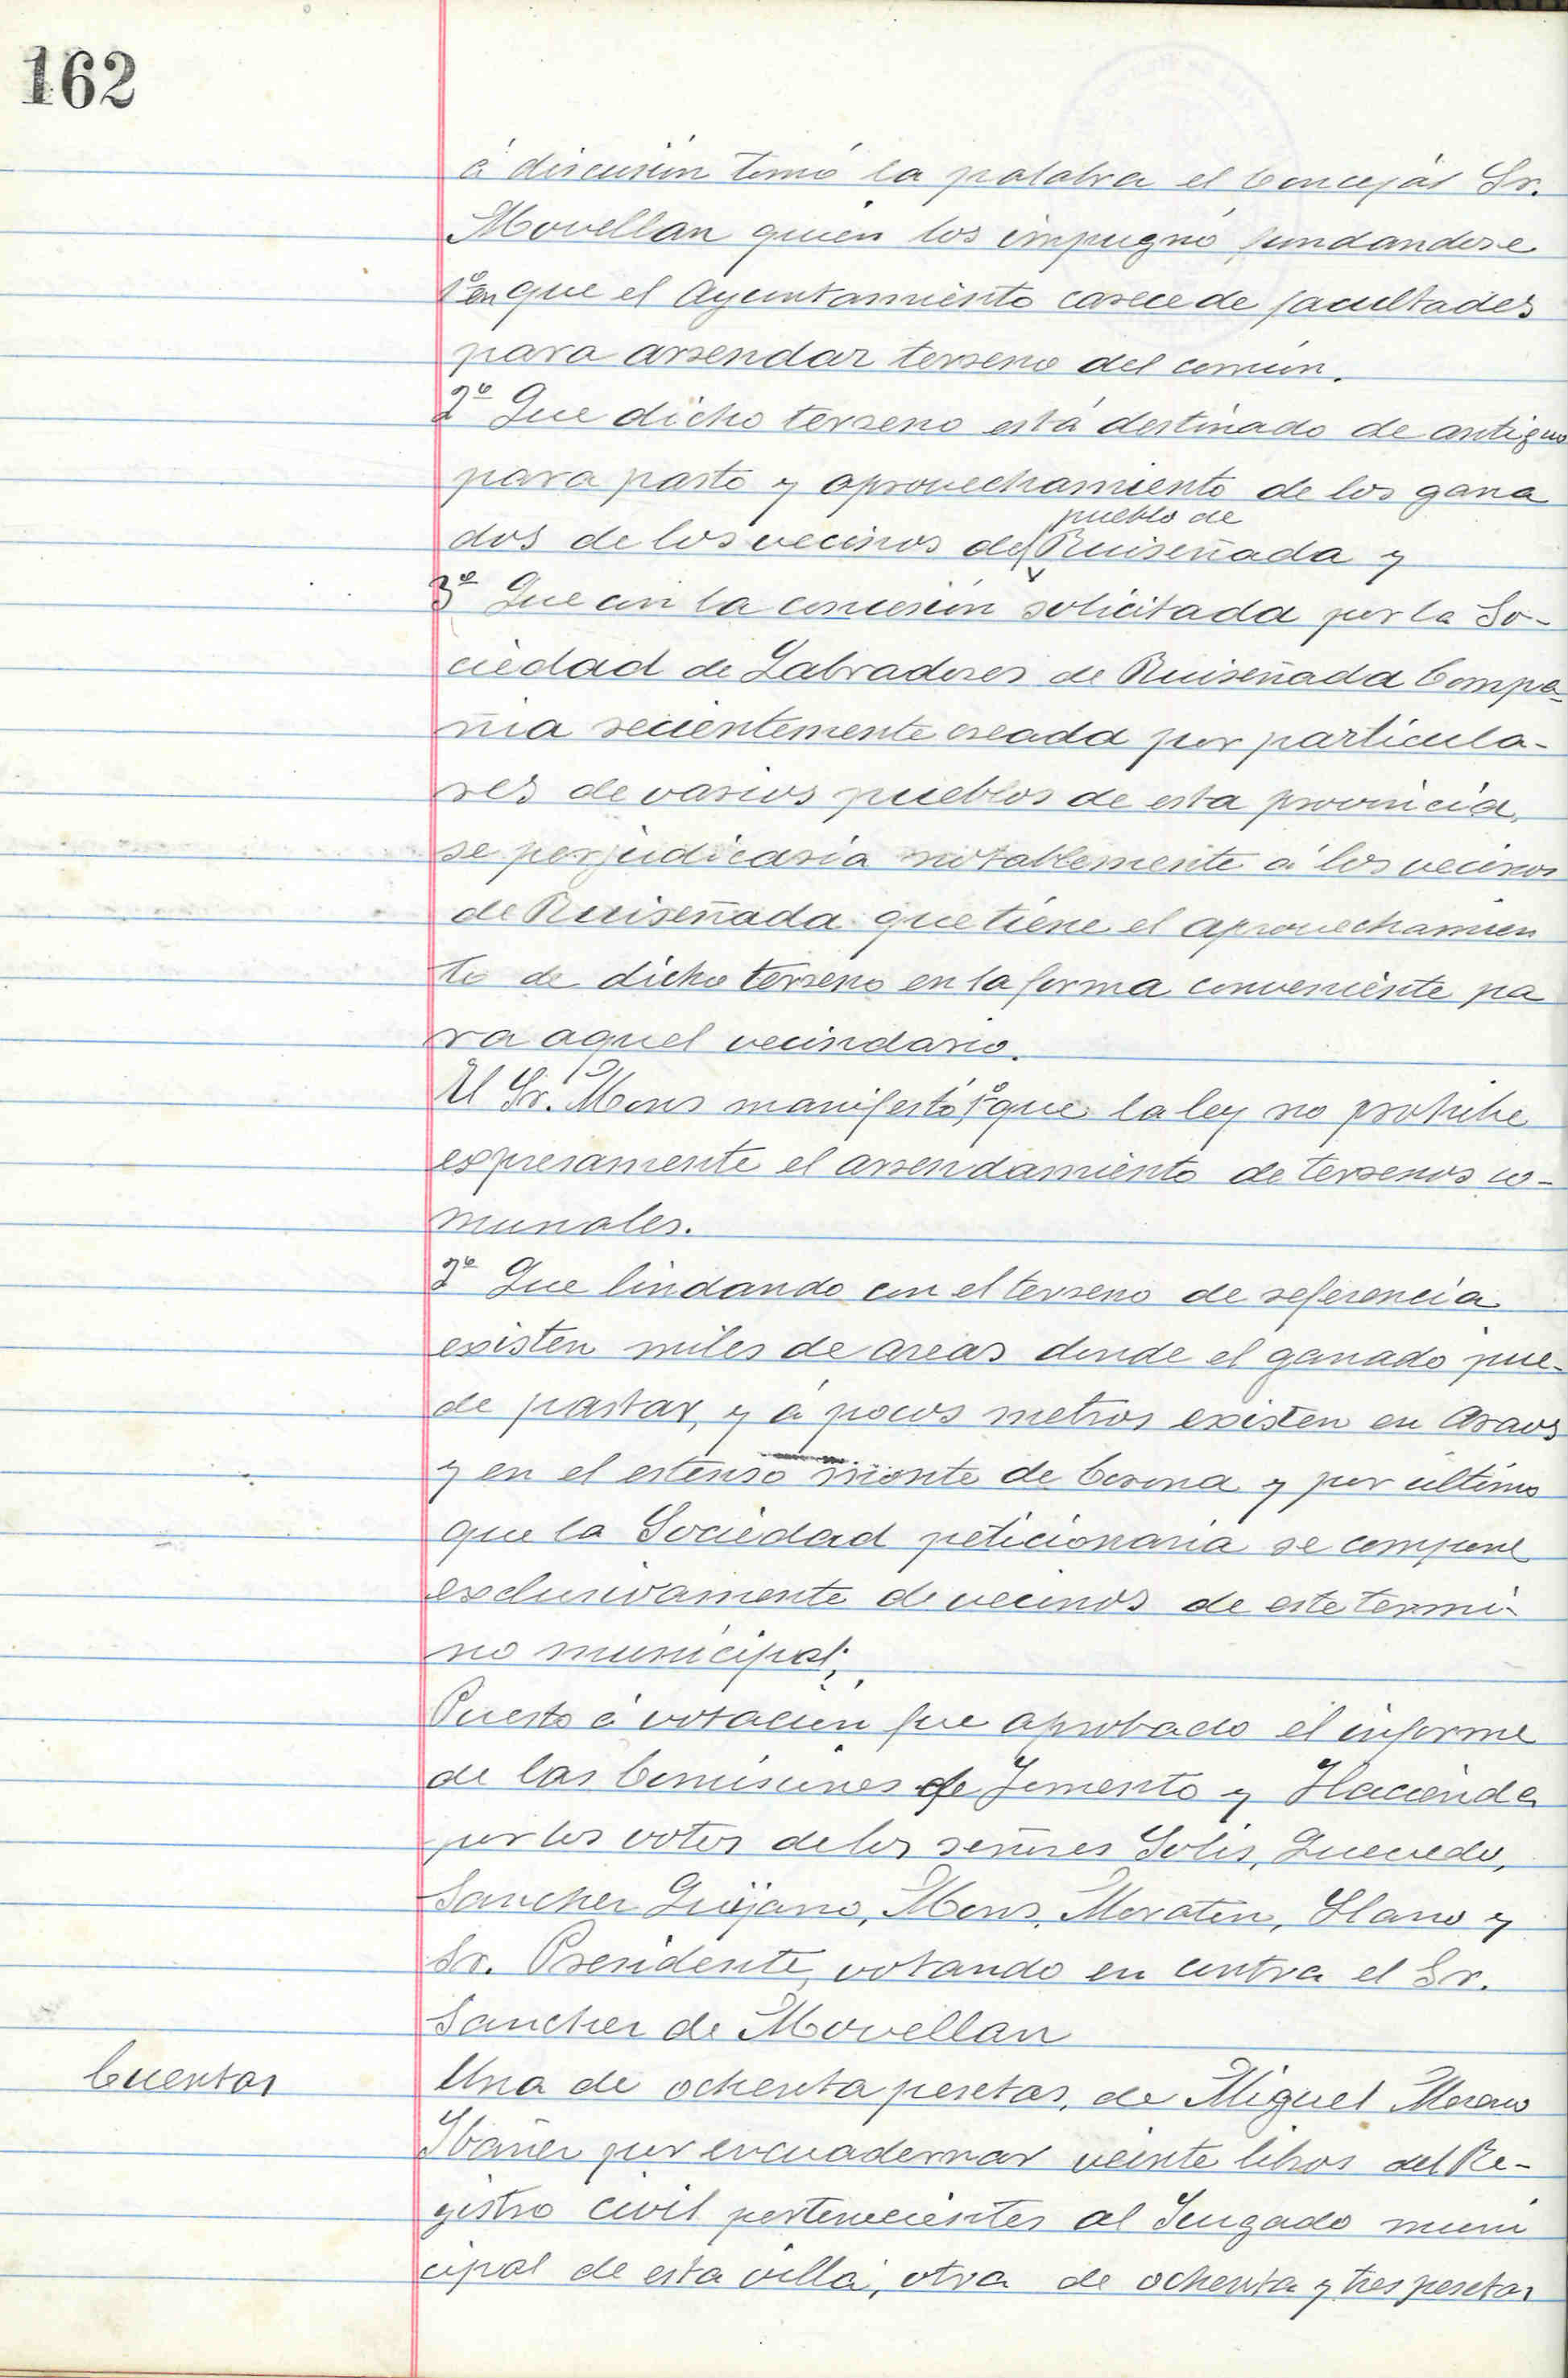 162
á discusión tomó la palabra el Concejál Sr.
Movellan quien los impugnó fundandose
1º en que el Ayuntamiento carece de facultades
para arrendar terreno del común.
2º Que dicho terreno está destinado de antiguo
para pasto y aprovechamiento de los gana
pueblo de
dos de los vecinos del Ruiseñada y
3º Que con la concesión solicitada por la So-
ciedad de Labradores de Ruiseñada Compa-
ñia recientemente creada por particula-
res de varios pueblos de esta provincia,
se perjudicaria notablemente á los vecinos
de Ruiseñada que tiene el aprovechamien
to de dicho terreno en la forma conveniente pa
ra aquel vecindario.
El Sr. Mons manifestó, 1º que la ley no prohibe
expresamente el arrendamiento de terrenos co-
munales.
2º Que lindando con el terreno de referencia
existen miles de areas donde el ganado pue-
de pastar, y á pocos metros existen en Araos
y en el estenso monte de Corona y por último
que la Sociedad peticionaria se compone
exclusivamente de vecinos de este termi-
no municipal;
Puesto á votación fue aprobado el informe
de las Comisiones de Fomento y Hacienda
por los votos de los señores Solis, Quevedo,
Sanchez Quijano, Mons, Moratin, Llano y
Sr. Presidente, votando en contra el Sr.
Sanchez de Movellan
Cuentas
Una de ochenta pesetas, de Miguel Moreno
Ibañez por encuadernar veinte libros del Re-
gistro civil pertenecientes al Juzgado muni
cipal de esta villa, otra de ochenta y tres pesetas